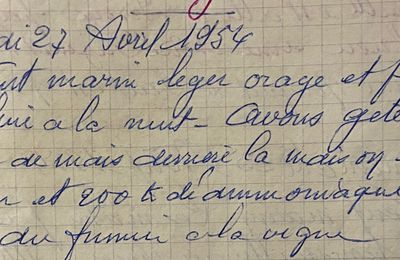 di 27 Avril 1954
marin leger orage et
a la nuit - Avons gete
de mais derriere la maison
et 200 K d'ammoniaque
du fumier a la vigne